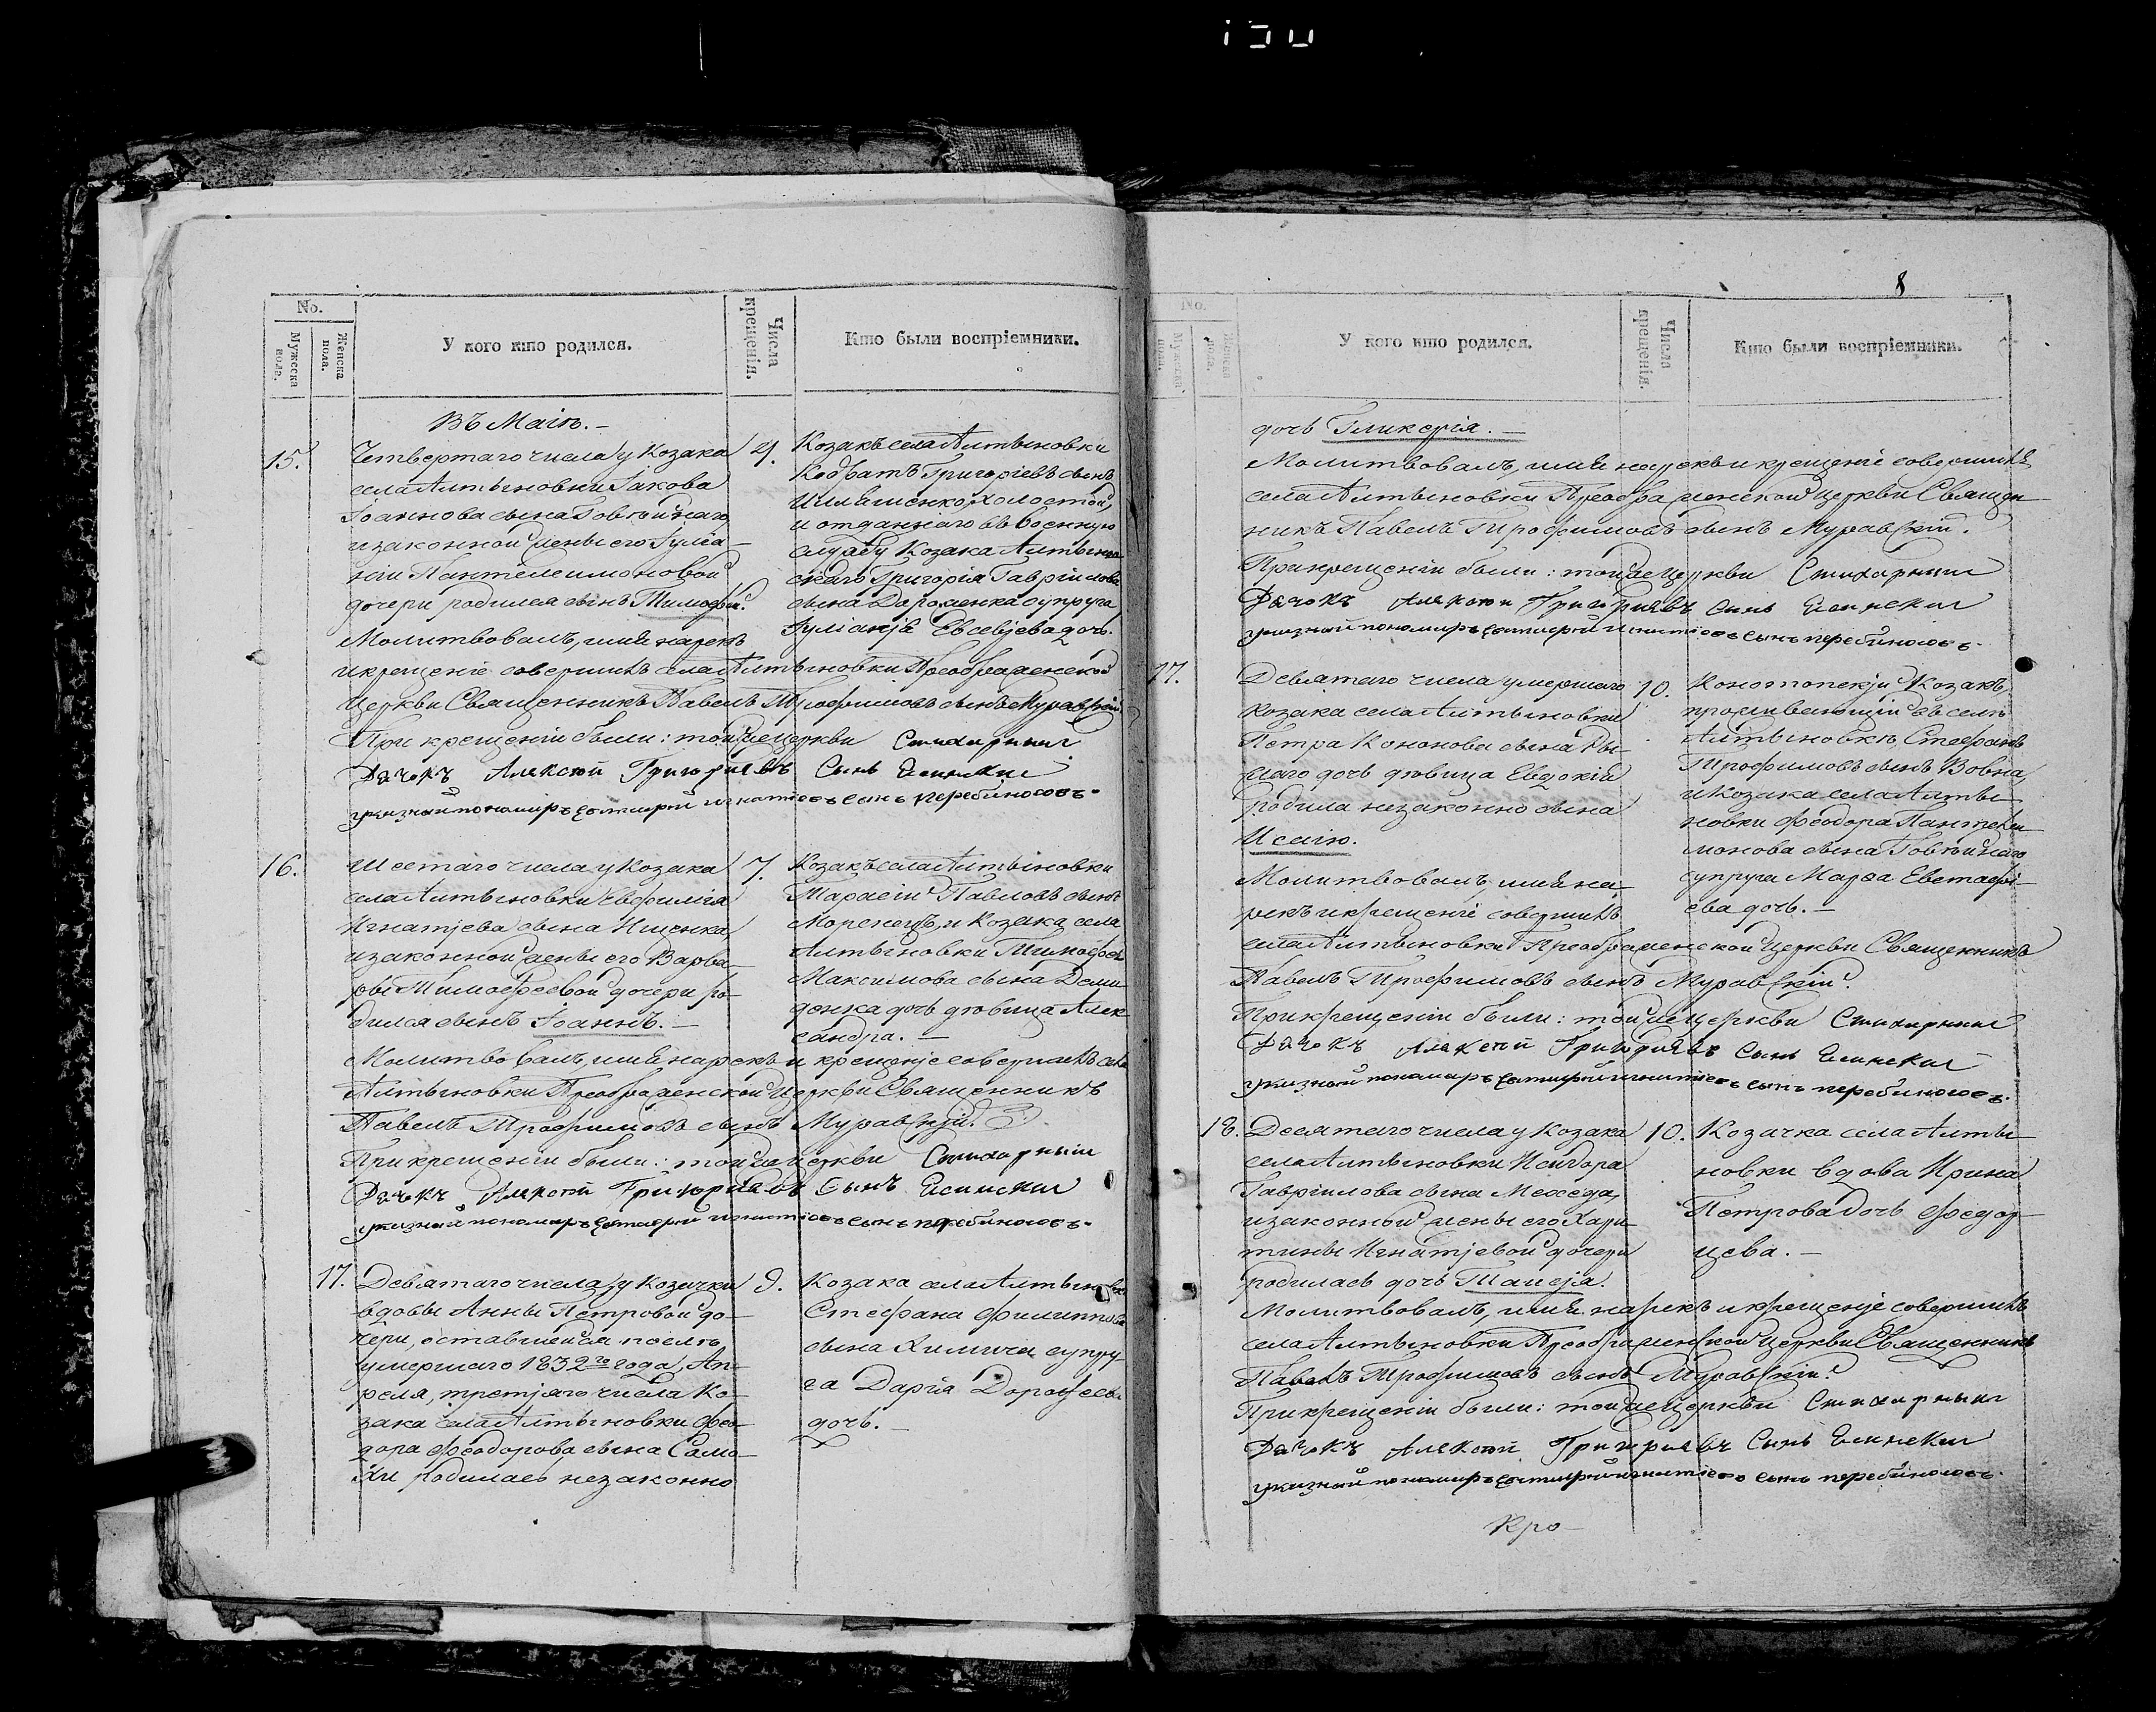 8
No.
Мужеска пола.
Женска пола.
У кого кто родился.
Числа крещенія.
Кто были воспріемники.
Въ Маіѣ.-
15.
Четвертаго числа у Козака
села Алтыновки Іакова
Іоаннова сына Говтвинаго,
и законной жены его Іулiа-
нiи Пантелеимоновой
дочери родился сынъ Тимофей.
4.
Козакъ села Алтыновки
Кодратъ Григорьевъ сынъ
холостой,
и отданнаго въ военную
службу Козака Алтынов
скаго Григорія Гавріилова
сына Дорошенка супруга
Іуліанія Евсевіева дочь.
Молитвовалъ, имя нарекъ
и крещеніе совершилъ села Алтыновки Преображенской
Церкви Священникъ Павелъ Трофимовъ сынъ Муравскій
При крещеніи были: той же церкви Стихарный
Дячокъ Алексѣй Григориевъ Сынъ
указный пономаръ игнатіевъ сынъ перебиносовъ.
16.
Шестаго числа у Козака
села Алтыновки Евфимія
Игнатіева сына Ищенка,
и законной жены его Варва-
ры Тимофеевой дочери ро-
дился сынъ Іоаннъ.-
7.
Козакъ села Алтыновки
Тарасій Павловъ сынъ
Моренецъ, и Козака села
Алтыновки Тимофея
Максимова сына Деми-
денка дочь дѣвица Алек-
сандра.-
Молитвовалъ, имя нарекъ и крещеніе совершилъ села
Алтыновки Преображенской Церкви Священникъ
Павелъ Трофимовъ сынъ Муравскій.
При крещеніи были: той же церкви Стихарный
Дячокъ Алексѣй Григориевъ Сынъ
указный пономаръ игнатіевъ сынъ перебиносовъ.
17.
Девятаго числа, у Козачки
вдовы Анны Петровой до-
чери, оставшейся послѣ
умершаго 1832го года, Ап-
реля, третяго числа Ко-
зака села Алтыновки Фео-
дора Феодорова сына Само-
хи родилась незаконно
9.
Козака села Алтыновки
Стефана Филиппова
сына Химича супру-
га Дарія Дорофеева
дочь.-
No.
У кого кто родился.
Числа крещенія.
Кто были воспріемники.
дочь Гликерія.-
Молитвовалъ, имя нарекъ и крещеніе совершилъ
села Алтыновки Преображенской Церкви Священ-
никъ Павелъ Трофимовъ сынъ Муравскій.
При крещеніи были: той же Церкви Стихарный
Дячокъ Алексѣй Григориевъ Сынъ
указный пономаръ игнатіевъ сынъ перебиносовъ.
17.
Девятаго числа умершаго
козака села Алтыновки
Петра Кононова сына Ры-
жаго дочь дѣвица Евдокія
родила незаконно сына
Исаію.
10.
Конотопскій Козакъ,
проживающій въ селѣ
Алтыновкѣ, Стефанъ
Трофимовъ сынъ Вовна,
и Козака села Алты-
новки Феодора Пантелеи
монова сына Говтвинаго
супруга Марфа Евстафі-
ева дочь.-
Молитвовалъ, имя на-
рекъ и крещеніе совершилъ
села Алтыновки Преображенской Церкви Священникъ
Павелъ Трофимовъ сынъ Муравскій.
При крещеніи были: той же Церкви Стихарный
Дячокъ Алексѣй Григориевъ Сынъ
указный пономаръ игнатіевъ сынъ перебиносовъ.
18.
Десятаго числа у Козака
села Алтыновки Исидора
Гавріилова сына Мехеда,
и законной жены его Хари-
тины Игнатіевой дочери
родилась дочь Таисія.
10.
Козачка села Алты-
новки вдова Ирина
Петрова дочь Федор-
цева.-
Молитвовалъ, имя нарекъ и крещеніе совершилъ
села Алтыновки Преображенской Церкви Священникъ
Павелъ Трофимовъ сынъ Муравскій.
При крещеніи были: той же Церкви Стихарный
Дячокъ Алексѣй Григориевъ Сынъ
указный пономаръ игнатіевъ сынъ перебиносовъ.
Кро-